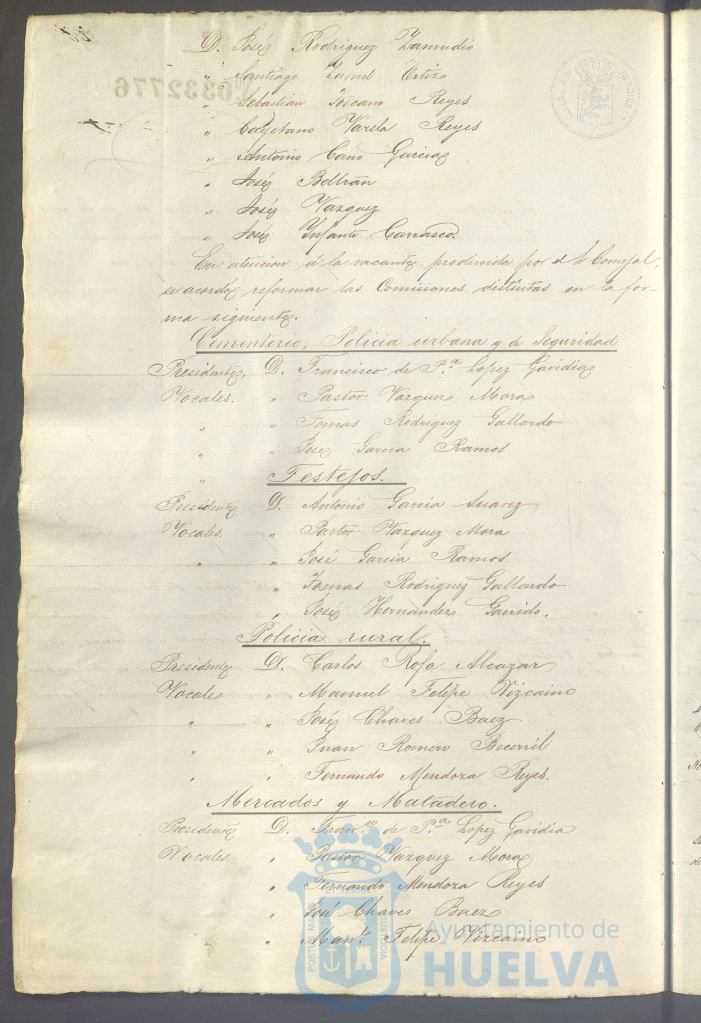 D. José Rodriguez Zamudio
" Santiago Zamel Ortiz
" Sebastián Toscano Reyes
" Cayetano Varela Reyes
" Antonio Cano Garcia
" José Beltrán
" José Vazquez
" José Infante Carrasco.
En atencion á la vacante producida por el Sr Concejal,
se acordó reformar las Comisiones distintas en la for-
ma siguiente.
Cementerio, Policia urbana y de Seguridad
Presidente, D. Francisco de P.ª López Gavidia
Vocales. " Pastor Vazquez Mora
" " Tomas Rodriguez Gallardo
" " José Garcia Ramos
Festejos.
Presidente D. Antonio Garcia Suarez
Vocales. " Pastor Vazquez Mora
" " José Garcia Ramos
" Tomas Rodriguez Gallardo
" José Hernandez Garrido.
Policia rural.
Presidente D. Carlos Rofa Alcazar
Vocales " Manuel Felipe Vizcaino
" " José Chaves Baez
" " Juan Romero Becerril
" " Fernando Mendoza Reyes.
Mercados y Matadero.
Presidente D. Fran.co de P.ª López Gavidia
Vocales " Pastor Vazquez Mora
" Fernando Mendoza Reyes
" José Chaves Baez
" Man.l Felipe Vizcaino
Ayuntamiento de
HUELVA